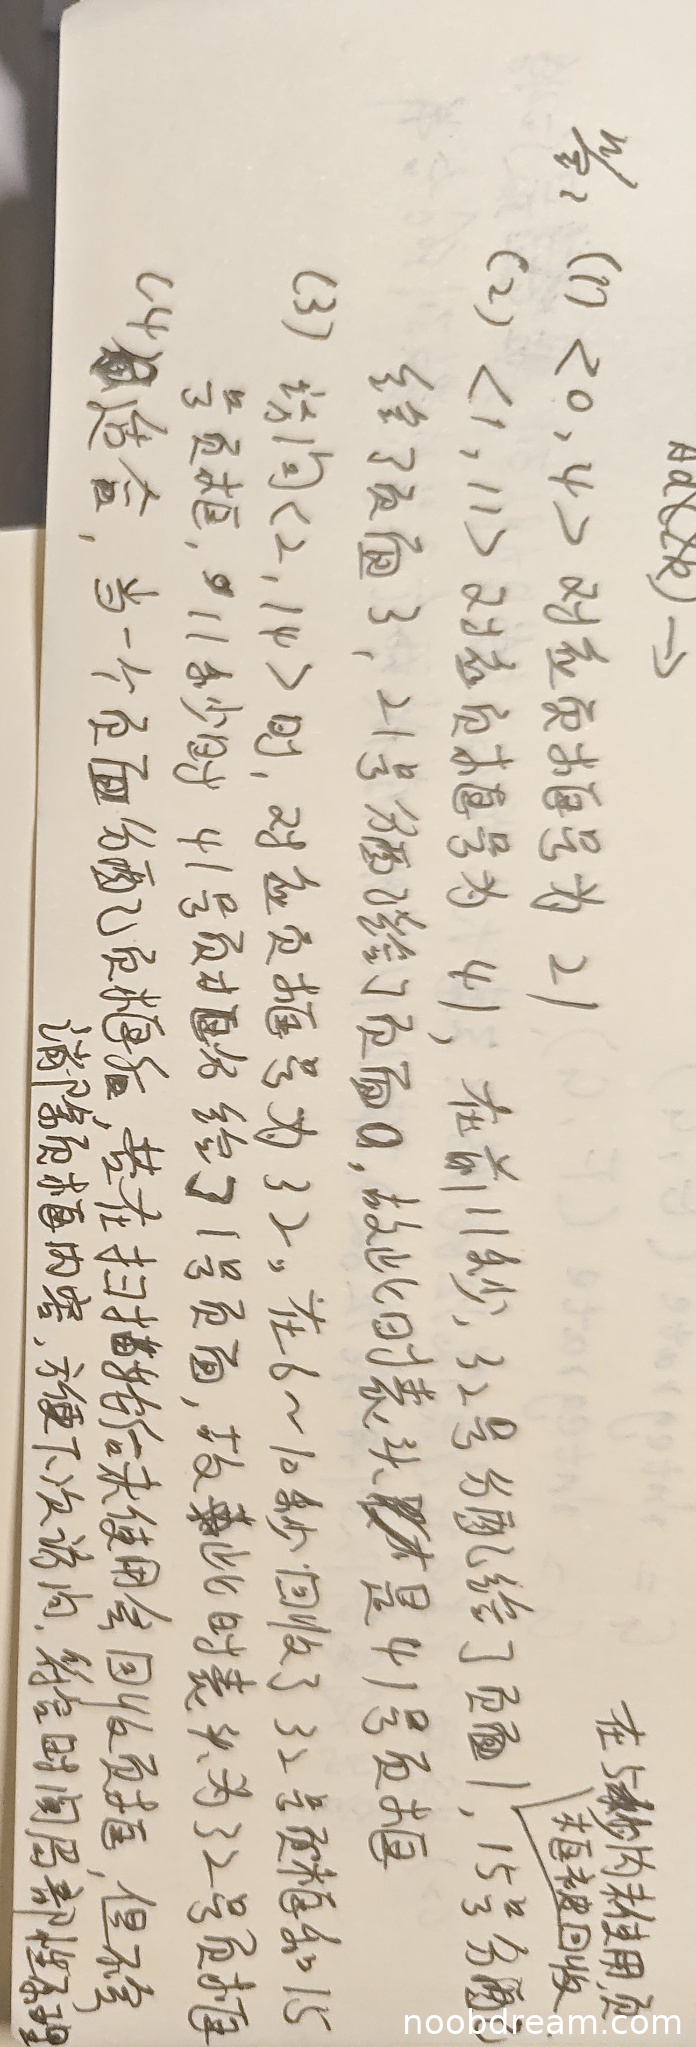 Adɑ(次R) →
答: (1) <0,4> 对应页框号为 21
在5秒内未使用,页
框被回收
(2) <1,11> 对应页框号为 41, 在前11秒, 32号分配给了页面1, 15号分配
给了页面3, 21号分配给了页面0, 故此时表头是41号页框
(3) 访问<2,14>时, 对应页框号为32。在6~10秒回收了32号页框和15
号页框, 11秒时 41号页框分给了1号页面, 故此时表头为32号页框
(4) 适合, 当一个页面分配页框后, 若在扫描开始后未使用会回收页框, 但不会
清除页框内容, 方便下次访问, 符合时间局部性原理
noobdream.com